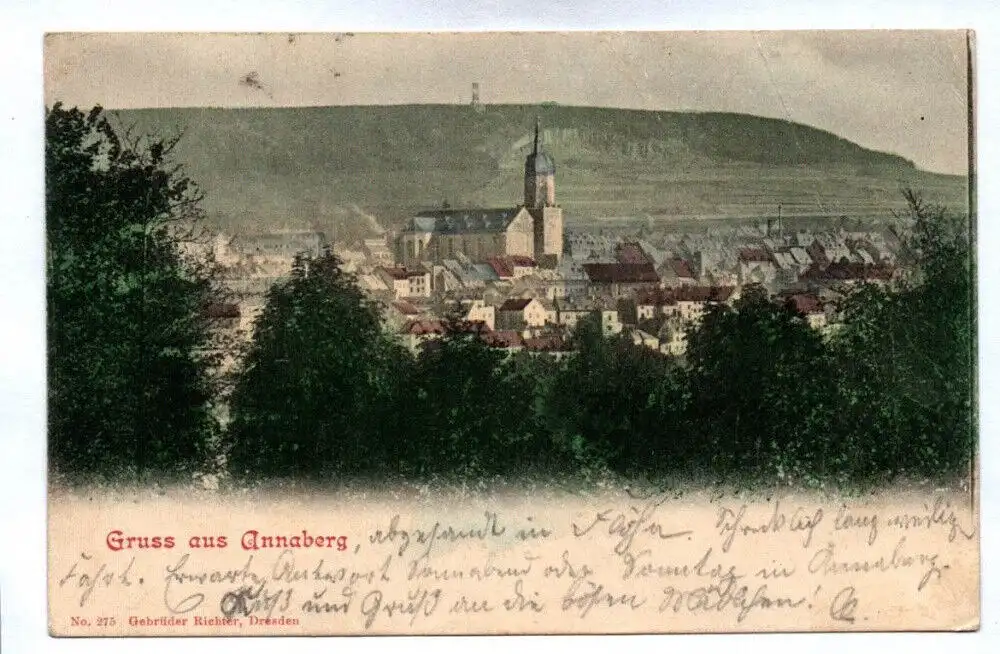 Gruss aus Annaberg, abgesandt in Flöha. Schrecklich langweilige
Fahrt. Erwarte Antwort Sonnabend oder Sonntag in Annaberg.
Kuß und Gruß an die bösen Mädchen!
No. 275 Gebrüder Richter, Dresden